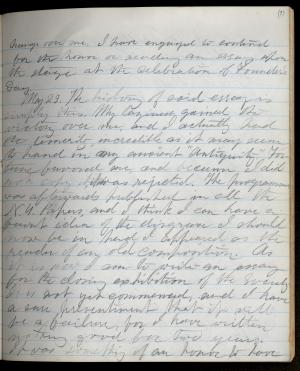 change over me, I have engaged to contend
for the honor of reading an essay upon
the stage at the celebration of Founder's
Day.
May 23. The history of said essay is
simply this. My laziness gained the
victory over me, and I actually had
the temerity, incredible as it may seem
to hand in an ancient Antiquity. For-
tune favored me, and because I did
not was rejected. The programme
was afterwards published in all the
N.Y. Papers, and I think I can have a
faint idea of the disgrace I should
now be in had I appeared as the
reader of an old composition. As
it is now I am to write an essay
for the closing exhibition of the Society
It is not yet commenced, and I have
a sure presentiment that it will
be a failure, for I have written
nothing good for two years.
It was something of an honor to have